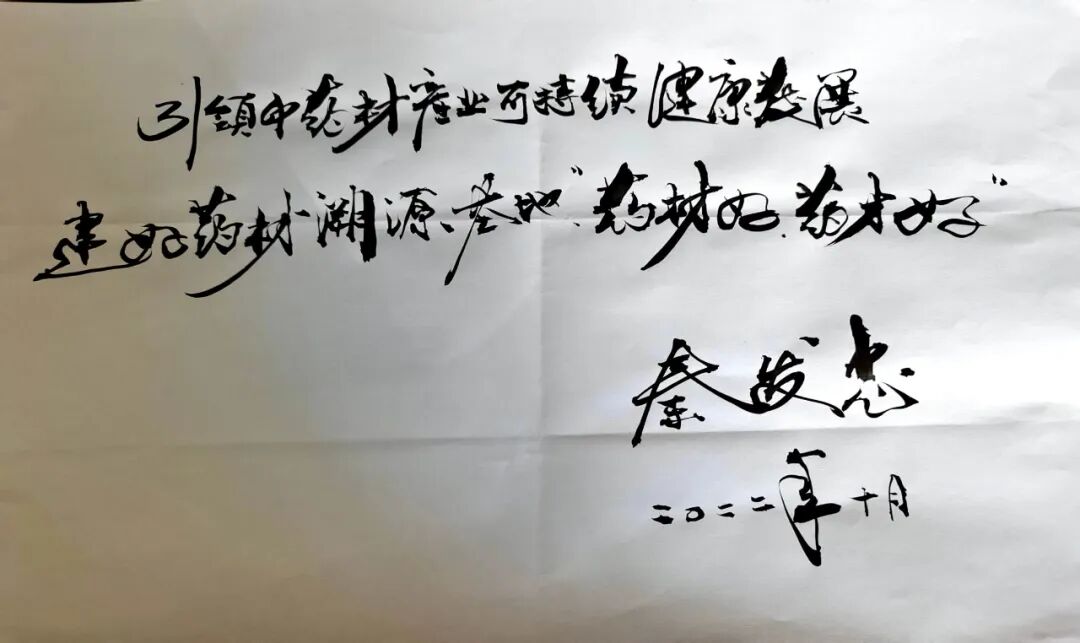 引领中药材产业可持续健康发展
建好药材溯源基地“药材好.药才好”
秦发忠
二〇二二年十月